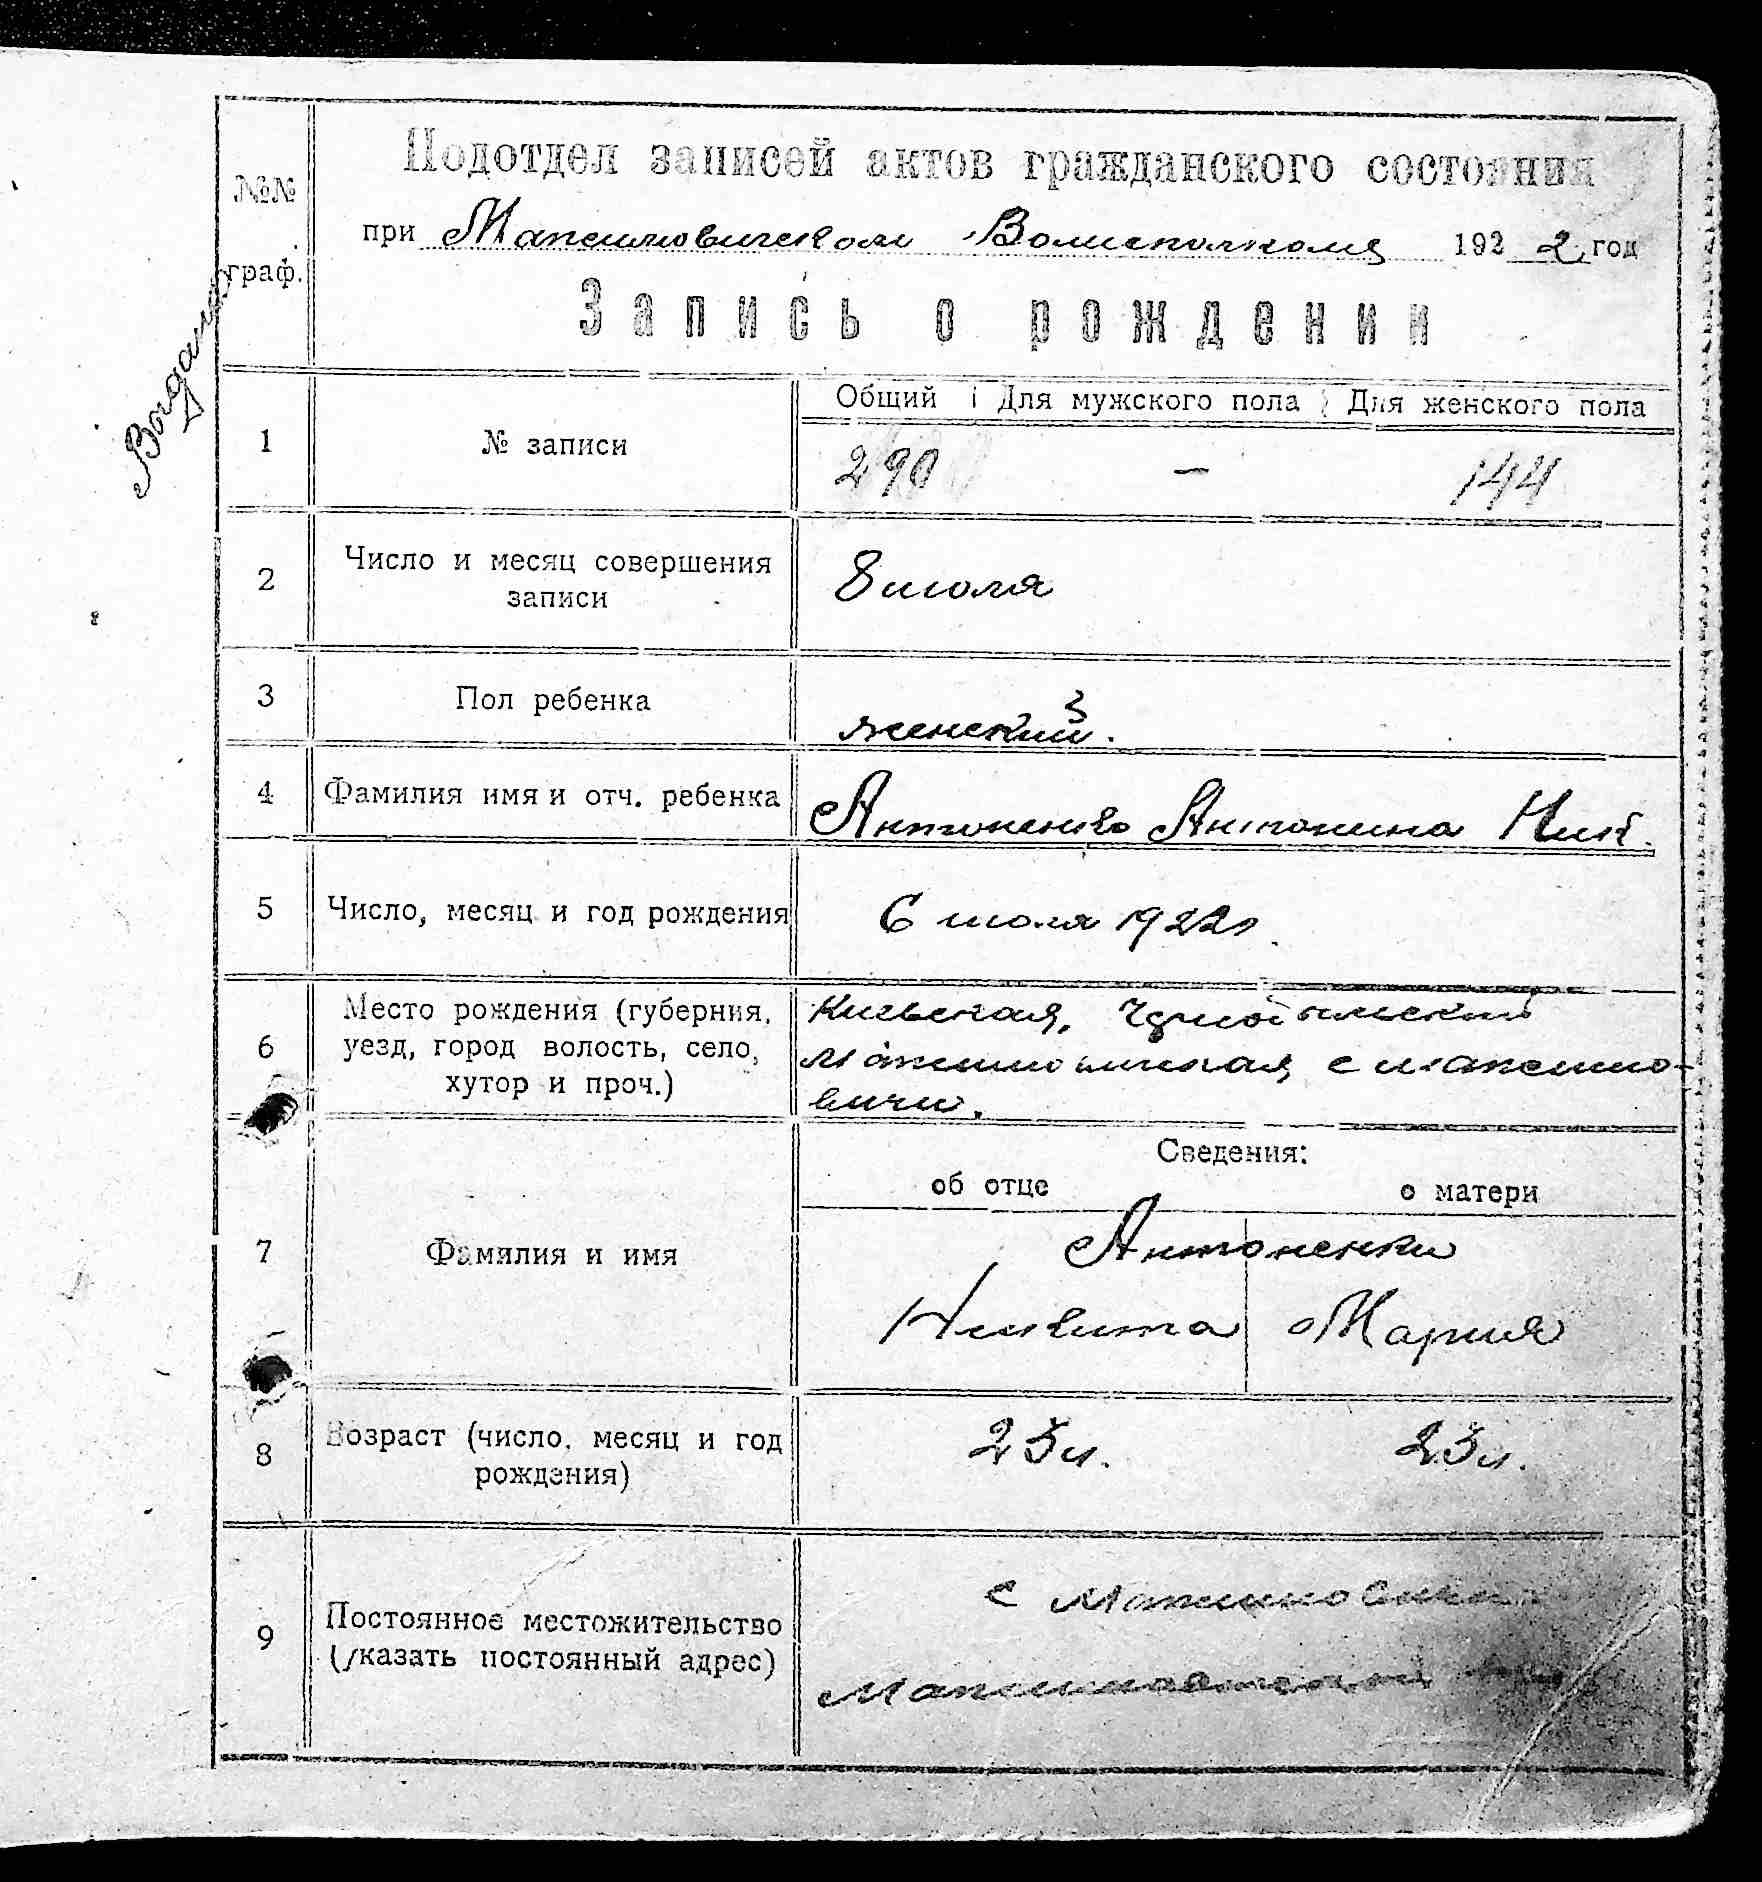 Подотдел записей актов гражданского состояния
№№ граф.
при Максимовическом Волисполкоме 1922 год
Запись о рождении
Выдано
Общий Для мужского пола Для женского пола
1 № записи 290 — 144
2 Число и месяц совершения записи 8 июля
3 Пол ребенка женский.
4 Фамилия имя и отч. ребенка Антоненко Антонина Ник.
5 Число, месяц и год рождения 6 июля 1922 г.
6 Место рождения (губерния, Киевская, Чернобыльский
уезд, город волость, село, Максимовичская с Максимо-
хутор и проч.) вичи.
Сведения:
об отце о матери
7 Фамилия и имя Антоненки
Никита Мария
8 Возраст (число, месяц и год рождения) 23 л. 23 л.
9 Постоянное местожительство с Максимовичи
(указать постоянный адрес)